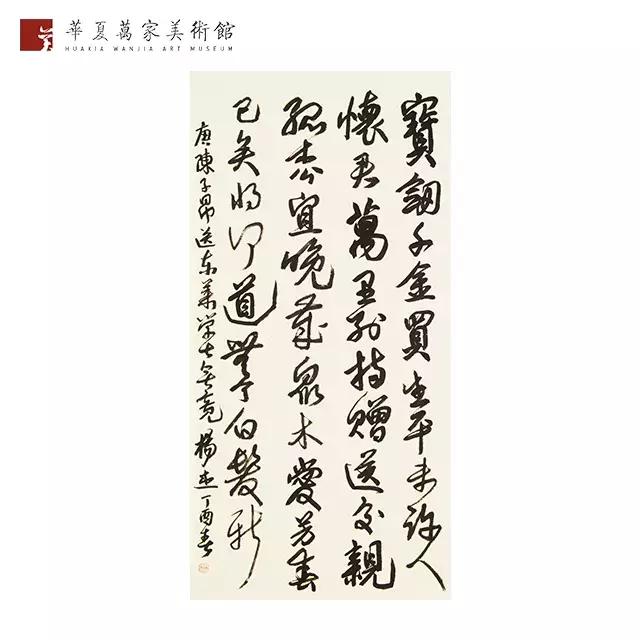 華夏萬家美術館
HUAXIA WANJIA ART MUSEUM
寶劍千金買生平未許人
懷君萬里別持贈送交親
孤松宜晚歲眾木愛芳春
已矣將何道無令白髮新
唐陳子昂送東萊學士無竟 楊 丁酉春